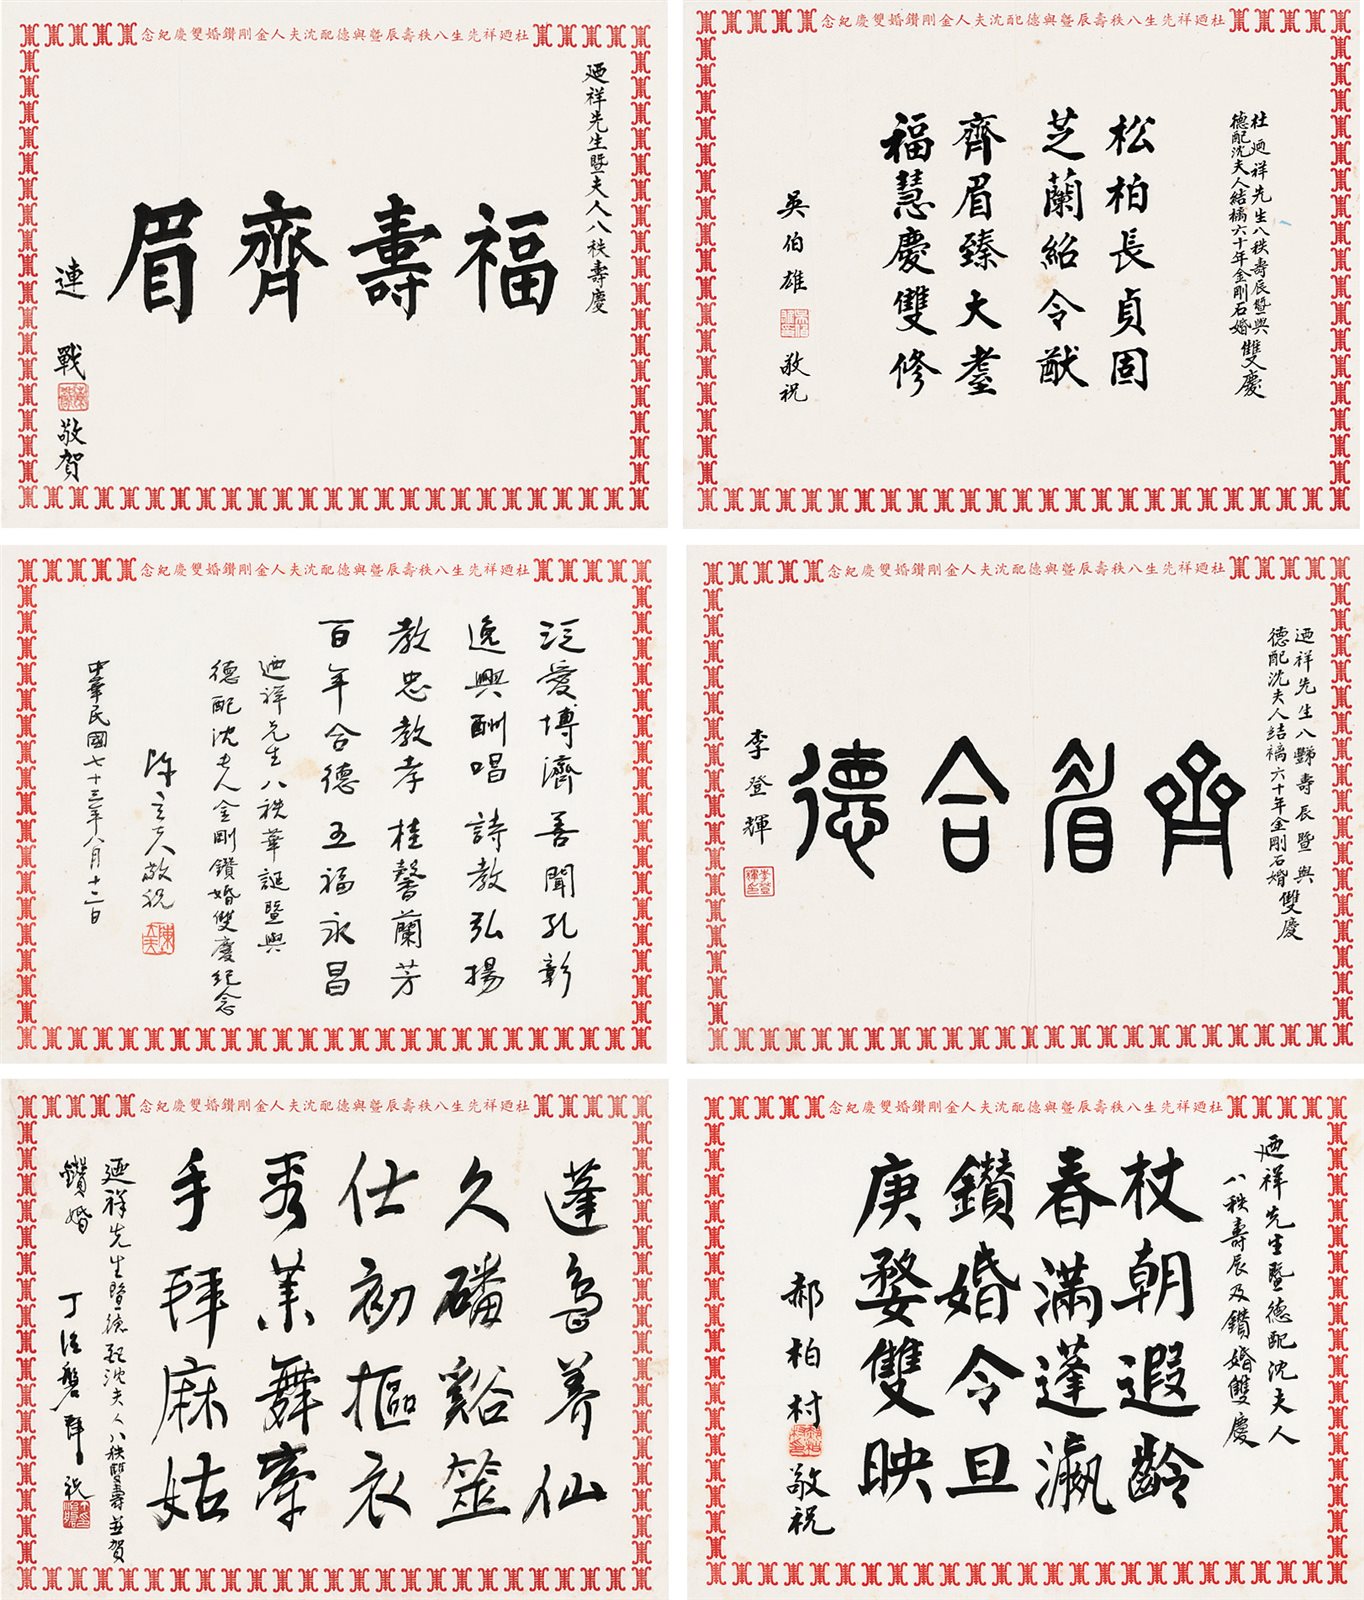 杜迺祥先生八秩壽辰暨與德配沈夫人金剛鑽婚雙慶紀念
迺祥先生暨夫人八秩壽慶
福壽齊眉
連戰
敬賀
杜迺祥先生八秩壽辰暨與德配沈夫人金剛鑽婚雙慶紀念
杜迺祥先生八秩壽辰暨與
德配沈夫人結褵六十年金剛石婚雙慶
松柏長貞固
芝蘭紹令猷
齊眉臻大耋
福慧慶雙修
吳伯雄
敬祝
杜迺祥先生八秩壽辰暨與德配沈夫人金剛鑽婚雙慶紀念
泛愛博濟善聞孔彰
逸興酬唱詩教弘揚
教忠教孝桂馨蘭芳
百年合德五福永昌
迺祥先生八秩華誕暨與
德配沈夫人金剛鑽婚雙慶紀念
陳立夫敬祝
陳立夫
中華民國七十三年八月十二日
杜迺祥先生八秩壽辰暨與德配沈夫人金剛鑽婚雙慶紀念
迺祥先生八豑壽辰暨與
德配沈夫人結褵六十年金剛石婚雙慶
齊眉合德
李登輝
李登輝
杜迺祥先生八秩壽辰暨與德配沈夫人金剛鑽婚雙慶紀念
蓬島養仙
久磻谿筮
仕初摳衣
秀業舞牽
手拜麻姑
迺祥先生暨德配沈夫人八秩雙壽並賀
鑽婚
丁治磐拜祝
杜迺祥先生八秩壽辰暨與德配沈夫人金剛鑽婚雙慶紀念
迺祥先生暨德配沈夫人
八秩壽辰及鑽婚雙慶
杖朝遐齡
春滿蓬瀛
鑽婚令旦
庚婺雙映
郝柏村
敬祝